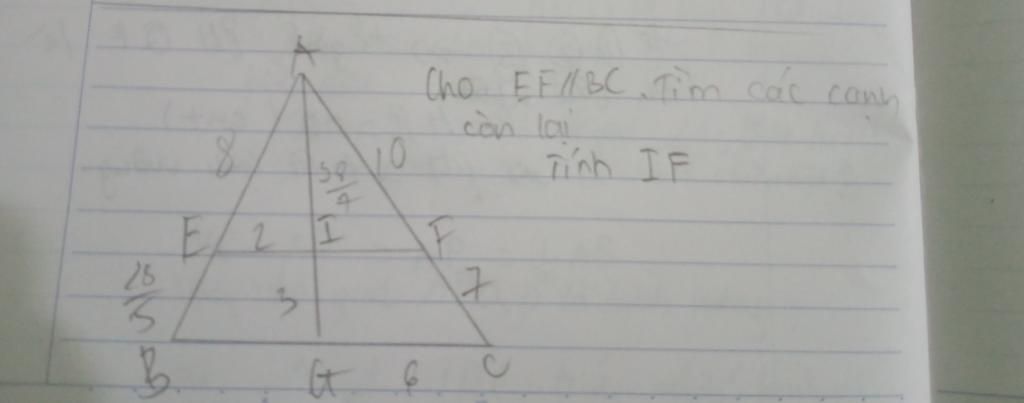 A
Cho EF//BC. Tìm các cạnh
còn lại
Tính IF
8
10
E
2
I
F
28
5
3
7
B
G
6
C